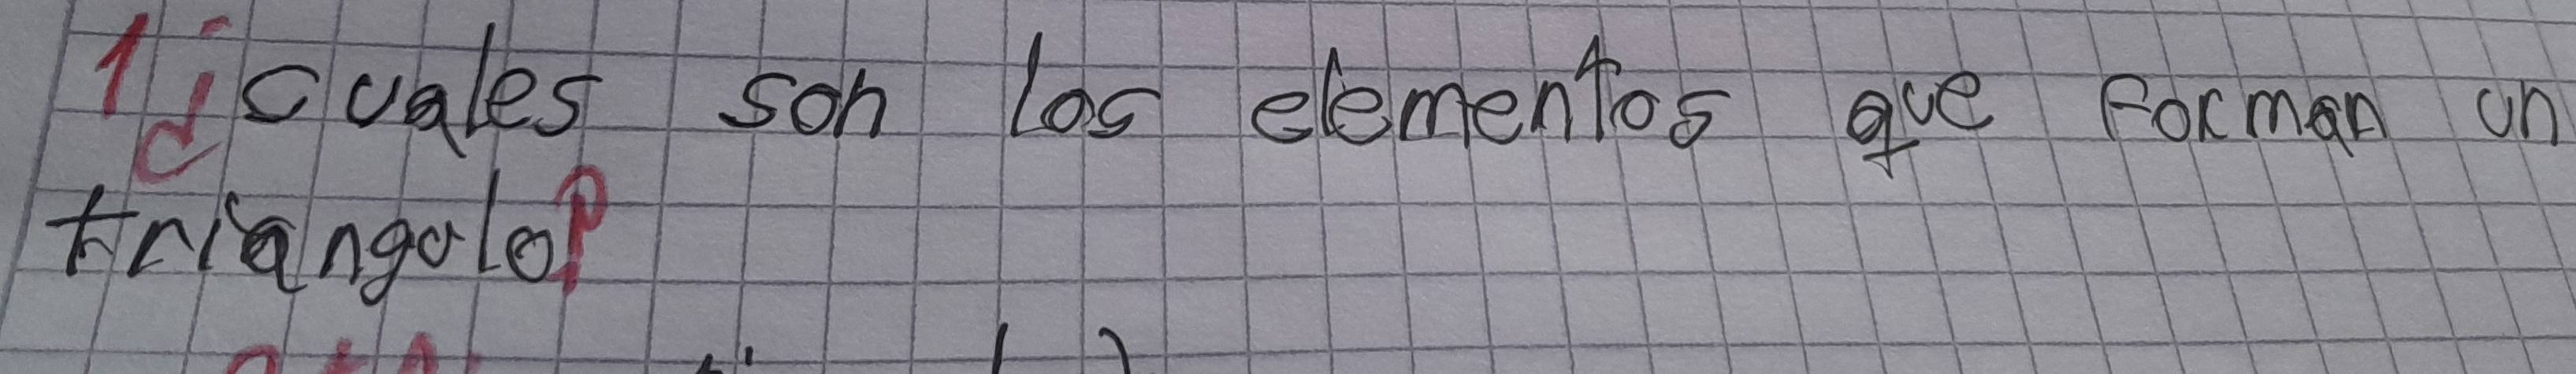 1 ¿cuales son los elementos que forman un
triangulo?